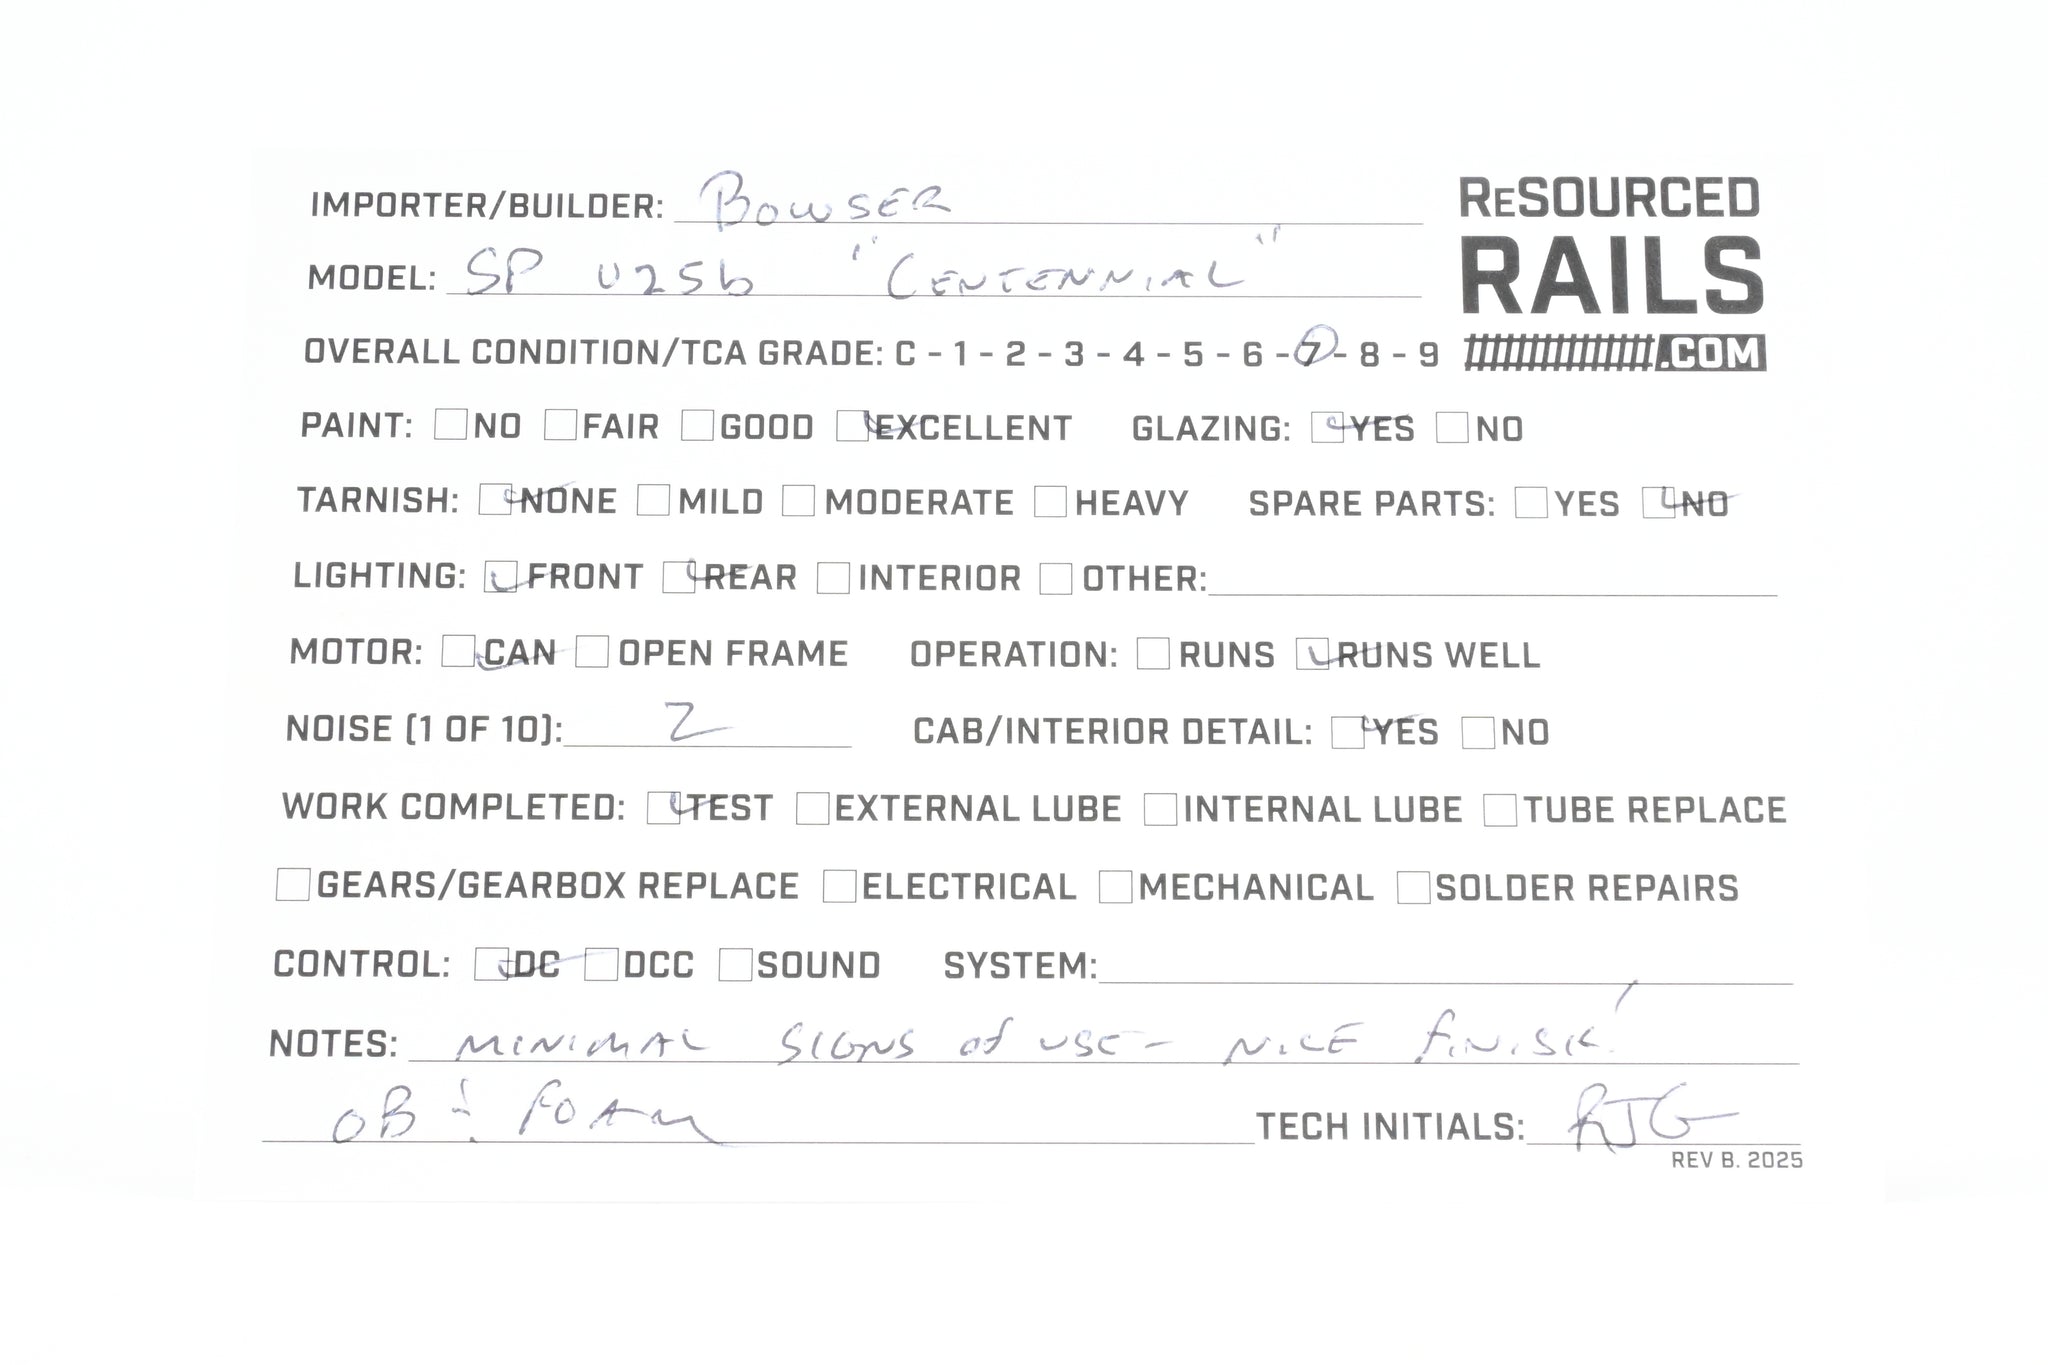 IMPORTER/BUILDER: BOWSER
ReSOURCED
RAILS
.COM
MODEL: SP U25b "CENTENNIAL"
OVERALL CONDITION/TCA GRADE: C - 1 - 2 - 3 - 4 - 5 - 6 - 7 - 8 - 9
PAINT: NO FAIR GOOD EXCELLENT GLAZING: YES NO
TARNISH: NONE MILD MODERATE HEAVY SPARE PARTS: YES NO
LIGHTING: FRONT REAR INTERIOR OTHER:
MOTOR: CAN OPEN FRAME OPERATION: RUNS RUNS WELL
NOISE (1 OF 10): 2 CAB/INTERIOR DETAIL: YES NO
WORK COMPLETED: TEST EXTERNAL LUBE INTERNAL LUBE TUBE REPLACE
GEARS/GEARBOX REPLACE ELECTRICAL MECHANICAL SOLDER REPAIRS
CONTROL: DC DCC SOUND SYSTEM:
NOTES: MINIMAL SIGNS of USE - NICE FINISH!
OB & FOAM TECH INITIALS: RJG
REV B. 2025